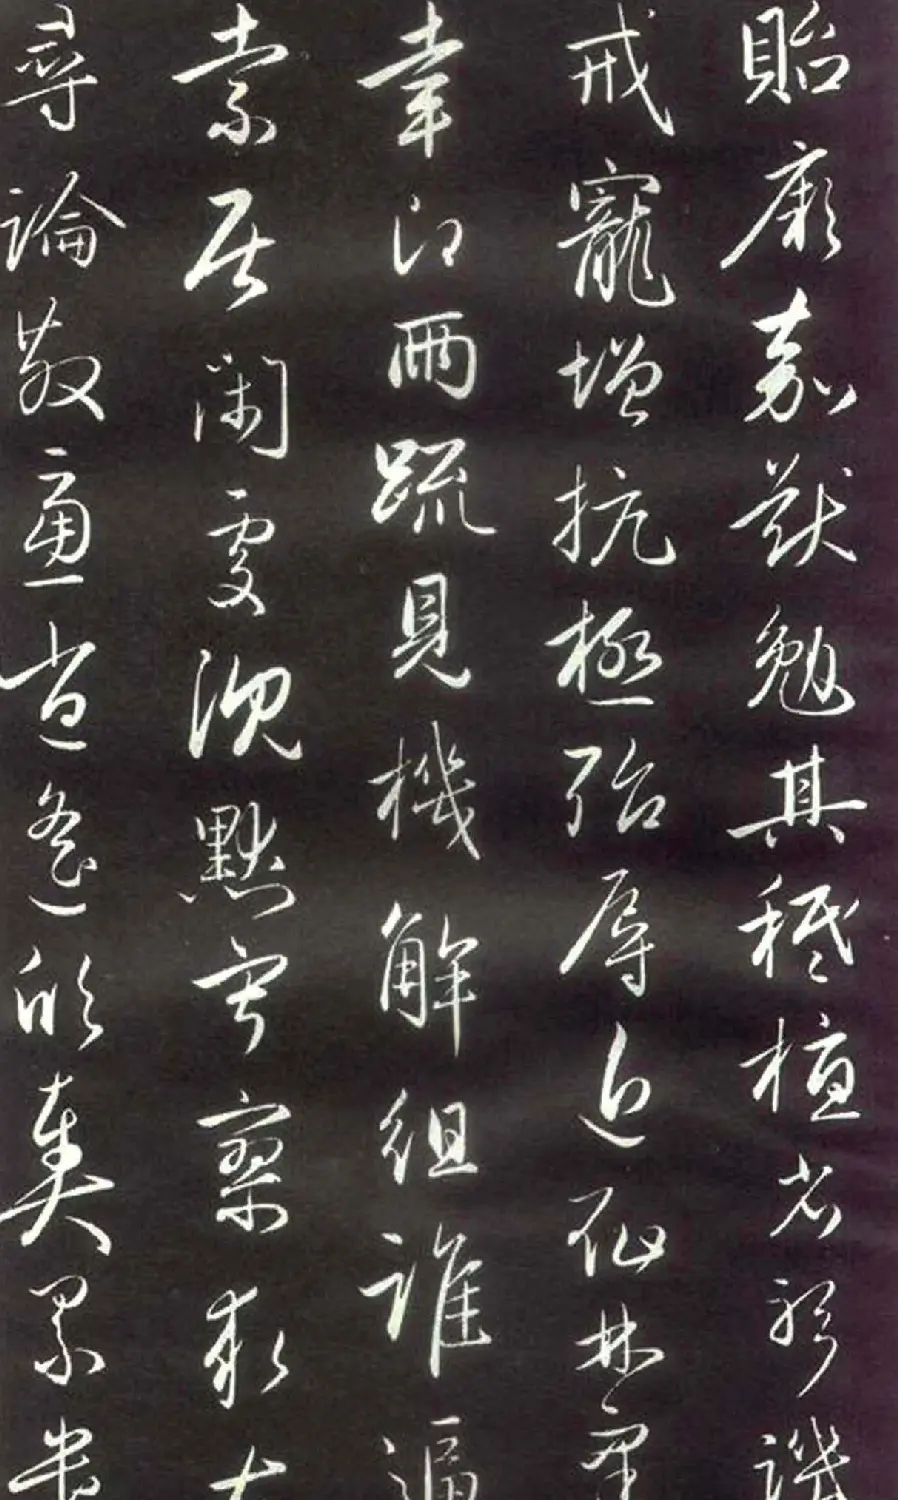 貽厥嘉猷勉其祗植省躬譏
戒寵增抗極殆辱近耻林皋
幸即兩疏見機解組誰逼
索居閑處沉默寂寥求古
尋論散慮逍遙欣奏累遣